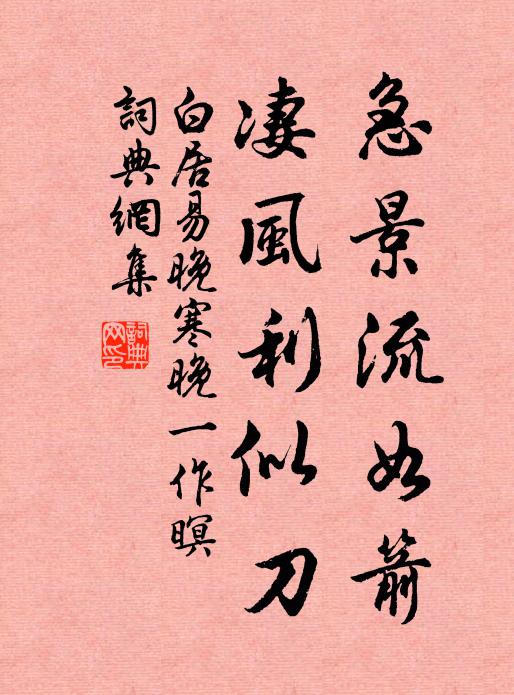 急景流如箭
凄風利似刀
白居易晚寒晚一作暝
詞典網集
詞典網印